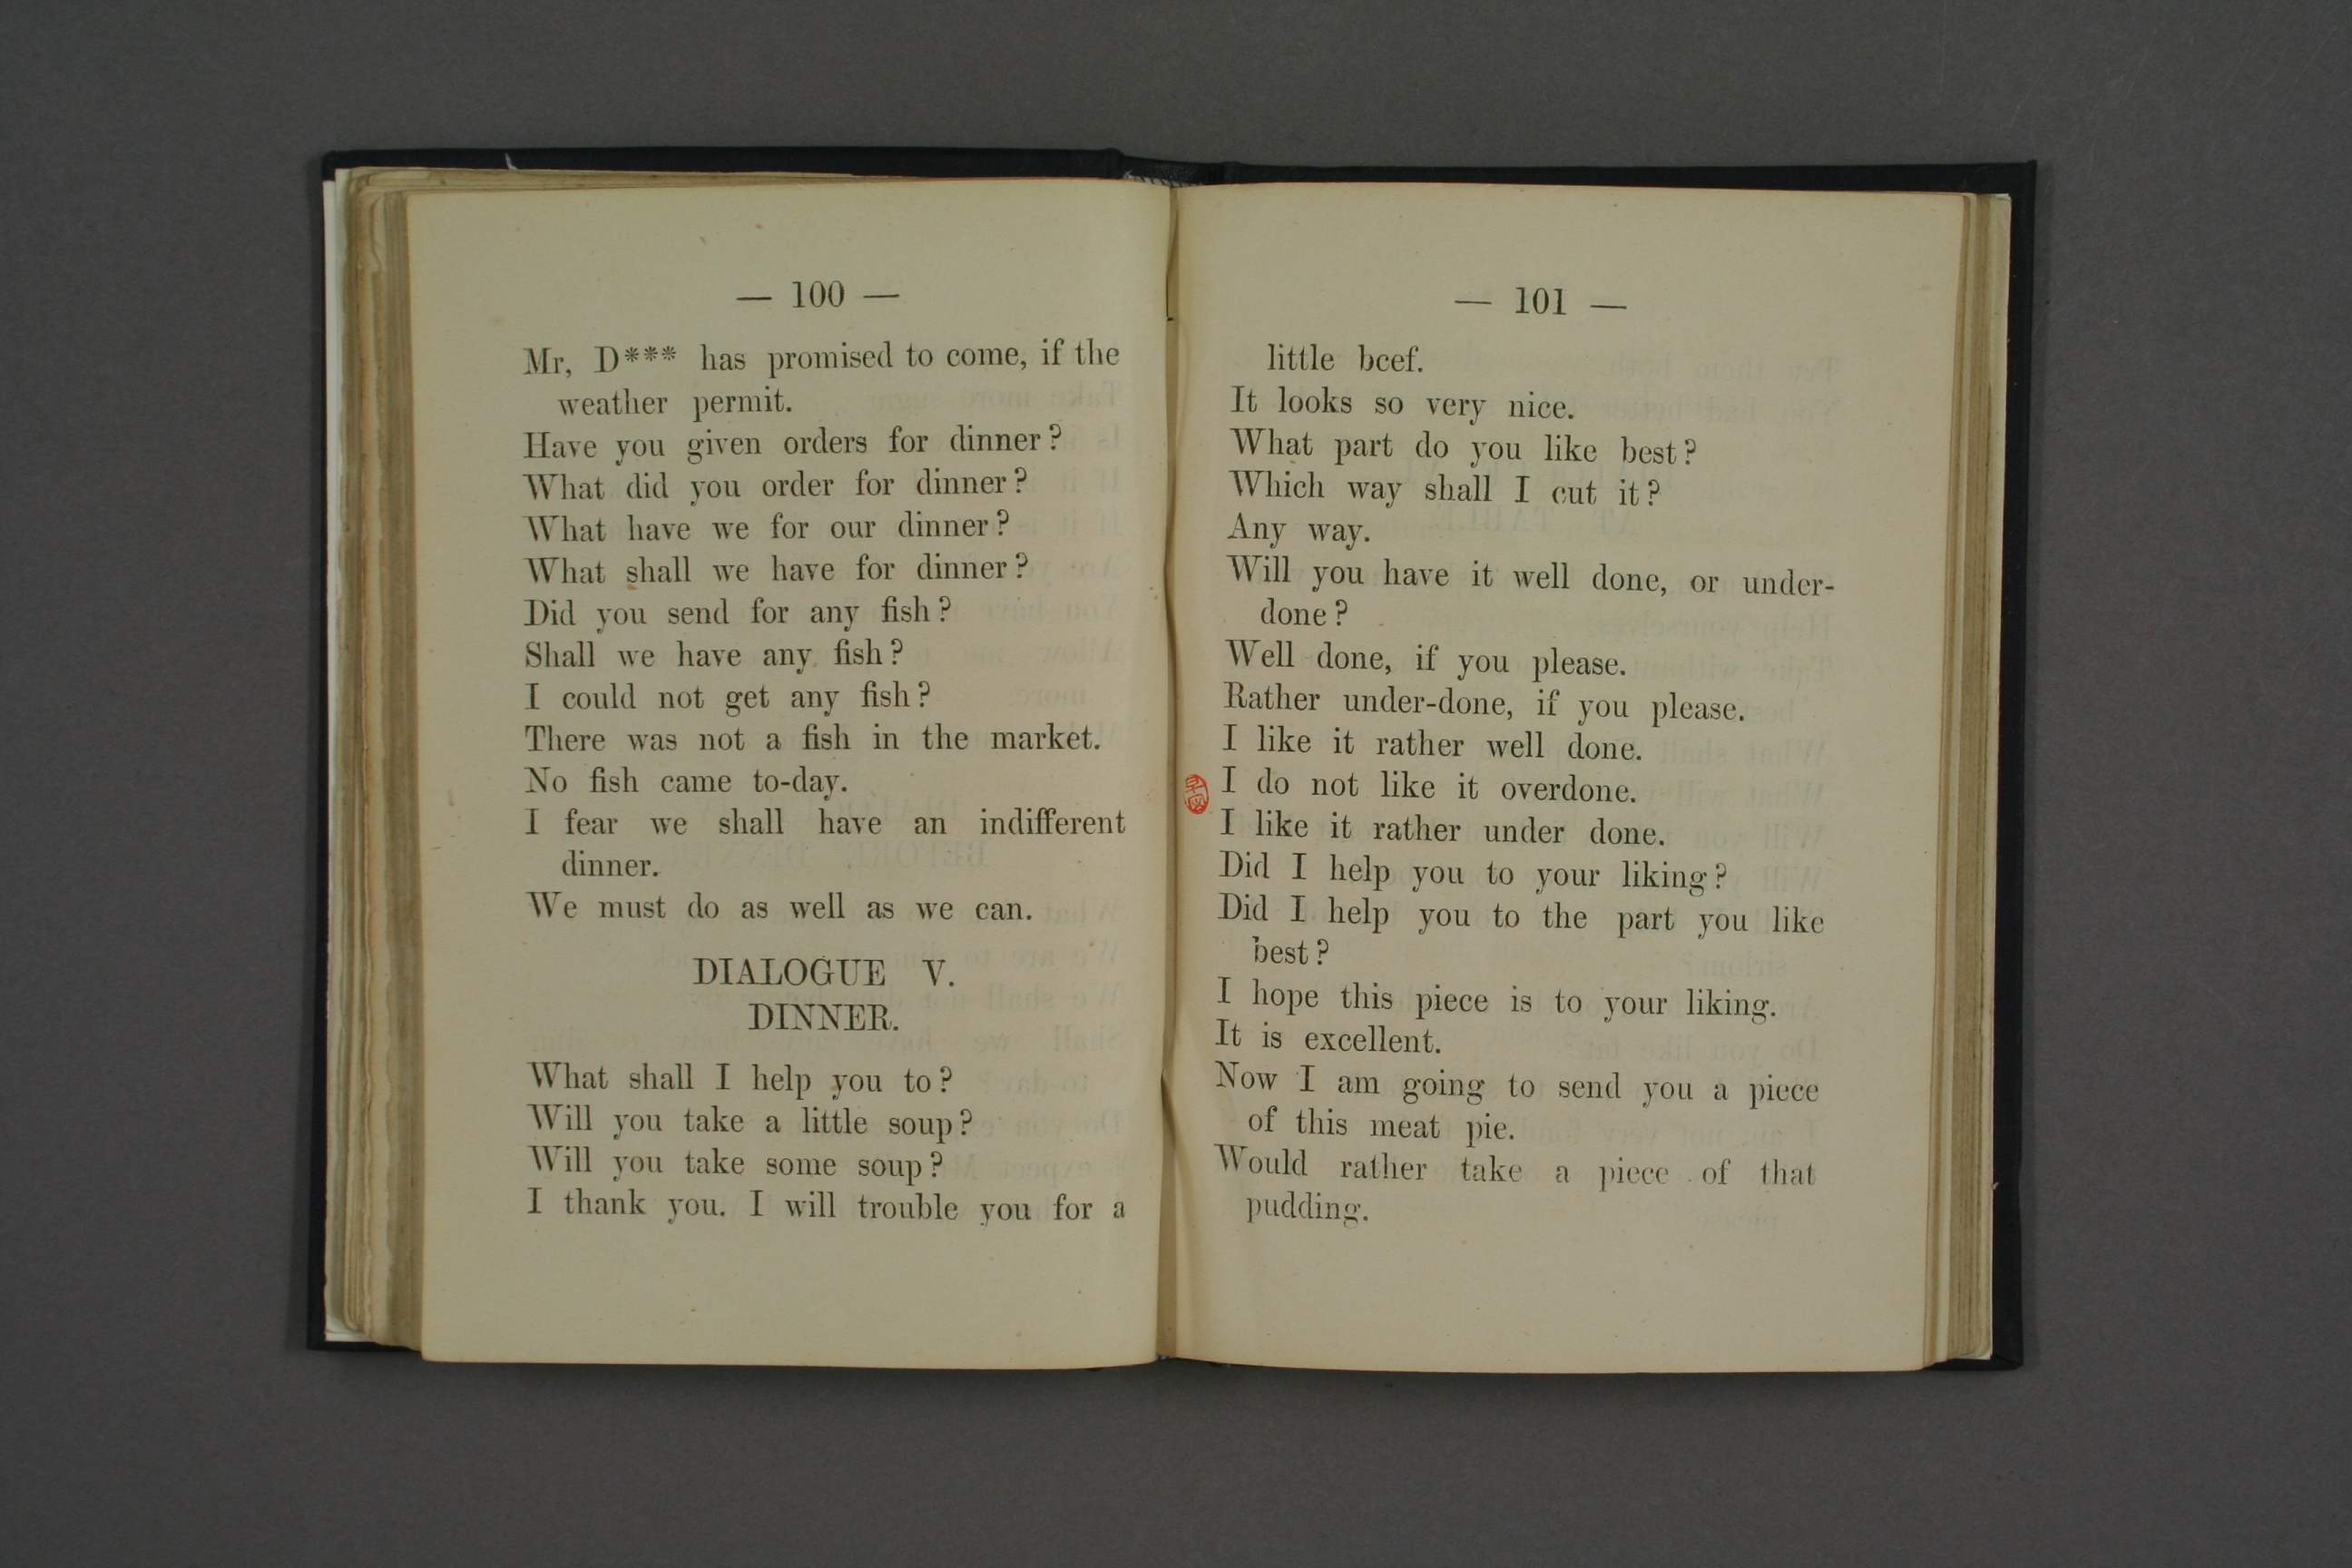 — 100 —
Mr, D*** has promised to come, if the
weather permit.
Have you given orders for dinner?
What did you order for dinner?
What have we for our dinner?
What shall we have for dinner?
Did you send for any fish?
Shall we have any fish?
I could not get any fish?
There was not a fish in the market.
No fish came to-day.
I fear we shall have an indifferent
dinner.
We must do as well as we can.
DIALOGUE V.
DINNER.
What shall I help you to?
Will you take a little soup?
Will you take some soup?
I thank you. I will trouble you for a
— 101 —
little beef.
It looks so very nice.
What part do you like best?
Which way shall I cut it?
Any way.
Will you have it well done, or under-
done?
Well done, if you please.
Rather under-done, if you please.
I like it rather well done.
I do not like it overdone.
I like it rather under done.
Did I help you to your liking?
Did I help you to the part you like
best?
I hope this piece is to your liking.
It is excellent.
Now I am going to send you a piece
of this meat pie.
Would rather take a piece of that
pudding.